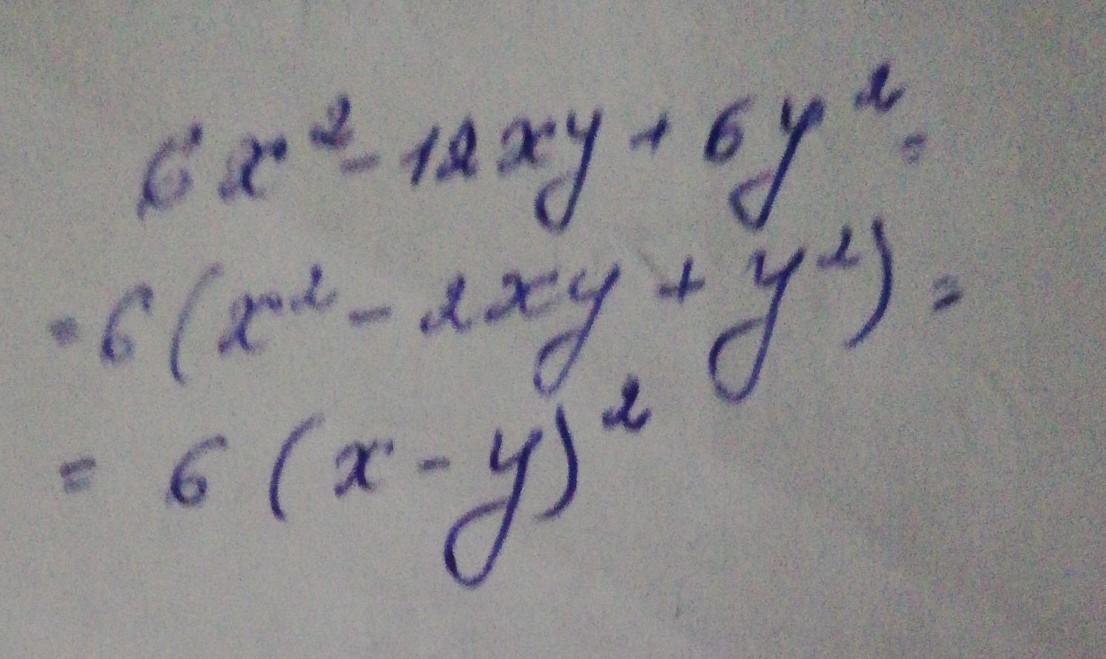 6x² - 12xy + 6y² =
= 6(x² - 2xy + y²) =
= 6(x - y)²